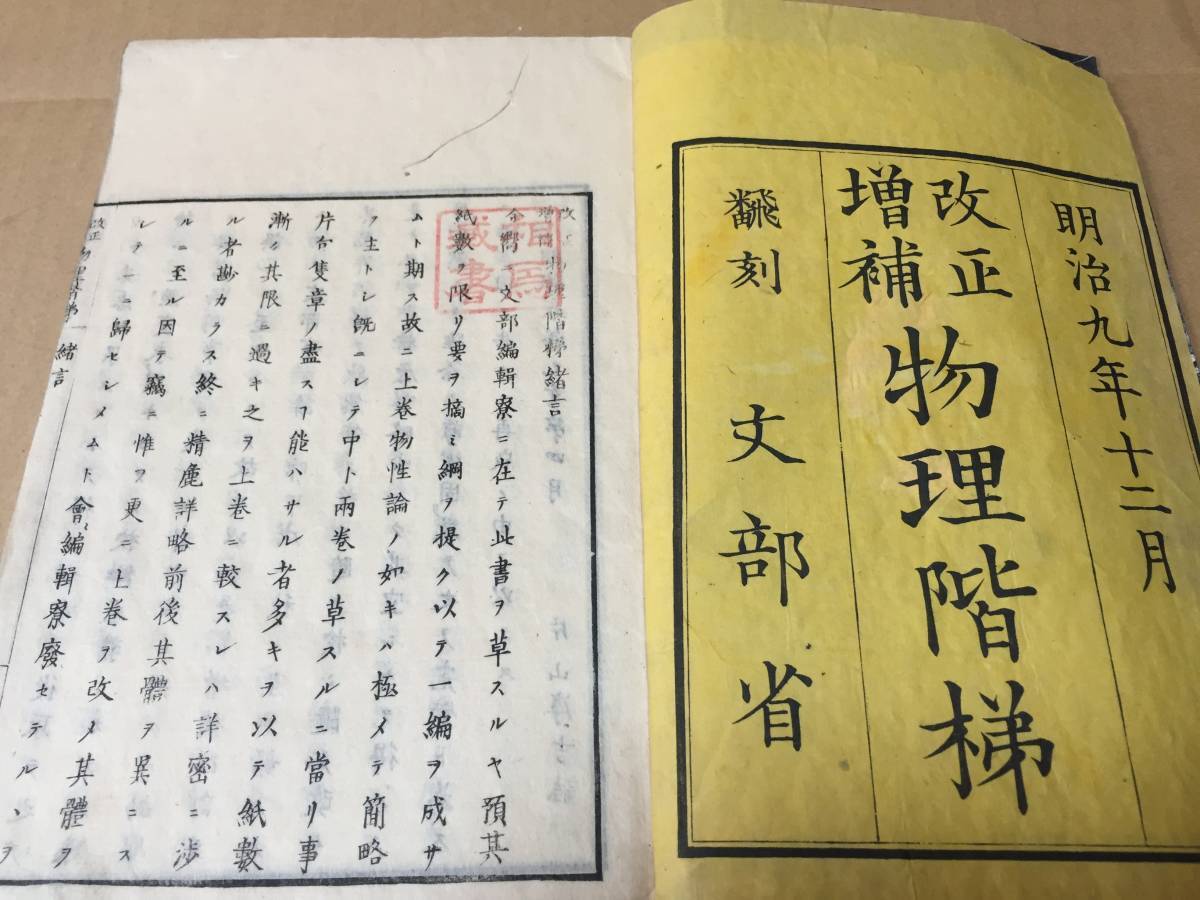 明治九年十二月
改正
増補
物理階梯
飜刻 文部省
改正増補物理階梯緒言
余嚮ニ文部編輯寮ニ在テ此書ヲ草スルヤ預其
紙數ヲ限リ要ヲ摘ミ綱ヲ提ケ以テ一編ヲ成サ
ムト期ス故ニ上巻物性論ノ如キハ極メテ簡略
ヲ主トシ既ニシテ中下兩巻ノ草スルニ當リ事
片言隻章ノ盡スヿ能ハサル者多キヲ以テ紙數
漸ク其限ニ過キ之ヲ上巻ニ較スレハ詳密ニ渉
ル者尠カラス終ニ精麁詳略前後其體ヲ異ニス
ルニ至ル因テ竊ニ惟ヲク更ニ上巻ヲ改メ其體ヲ
シテ一ニ歸セシメムト會〻編輯寮廢セラルヽヲ
改正物理階梯 緒言
相馬
藏書